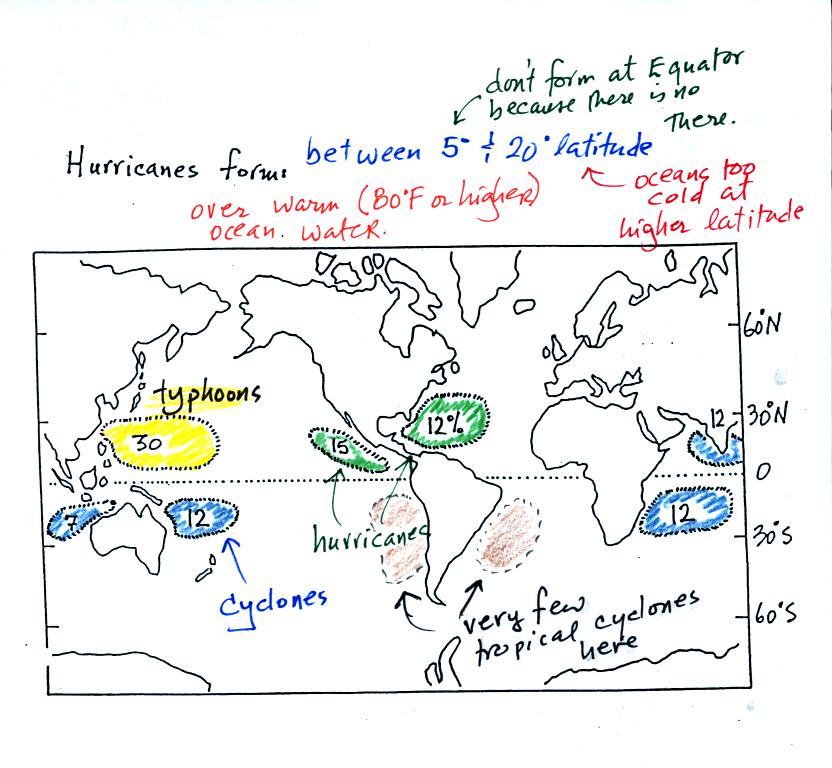 don't form at Equator
because there is no
There.
Hurricanes form: between 5° & 20° latitude
over warm (80°F or higher)
ocean. water.
oceans too
cold at
higher latitude
60°N
typhoons
30
15
12%
12
30°N
0
7
12
12
hurricanes
30°S
cyclones
very few
tropical cyclones
here
60°S